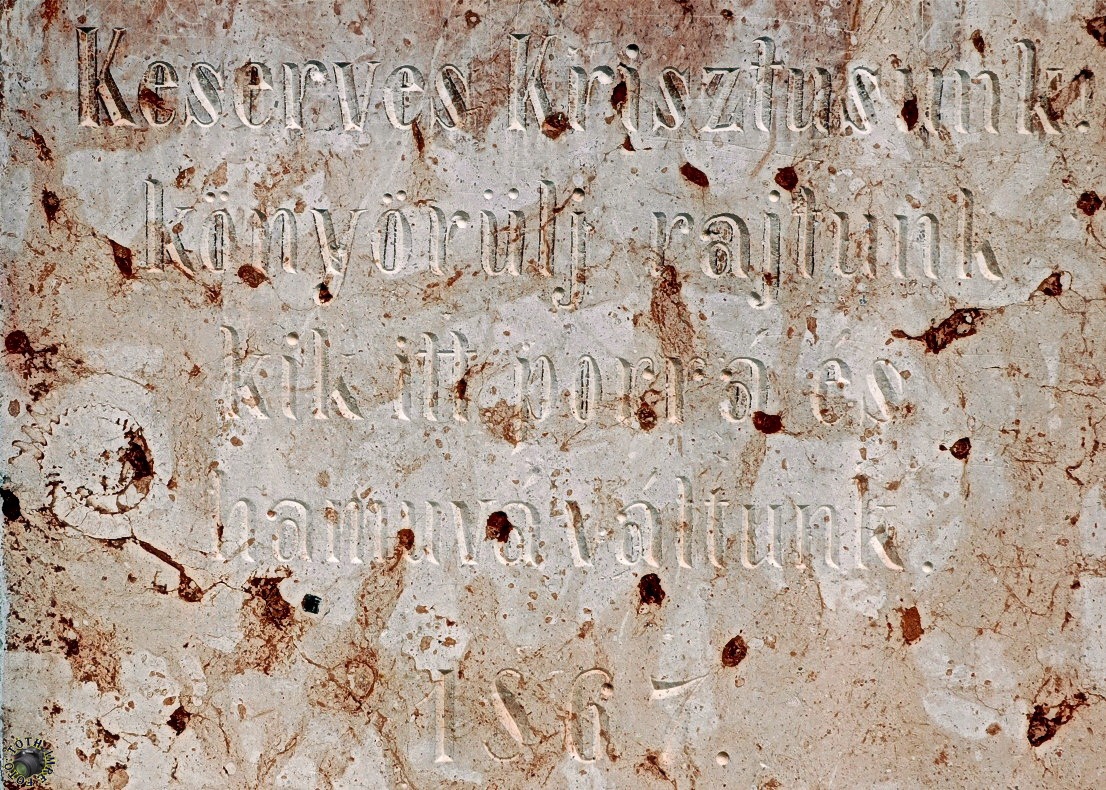 Keserves Krisztusunk!
könyörülj rajtunk
kik itt porrá és
hamuvá váltunk.
1867.